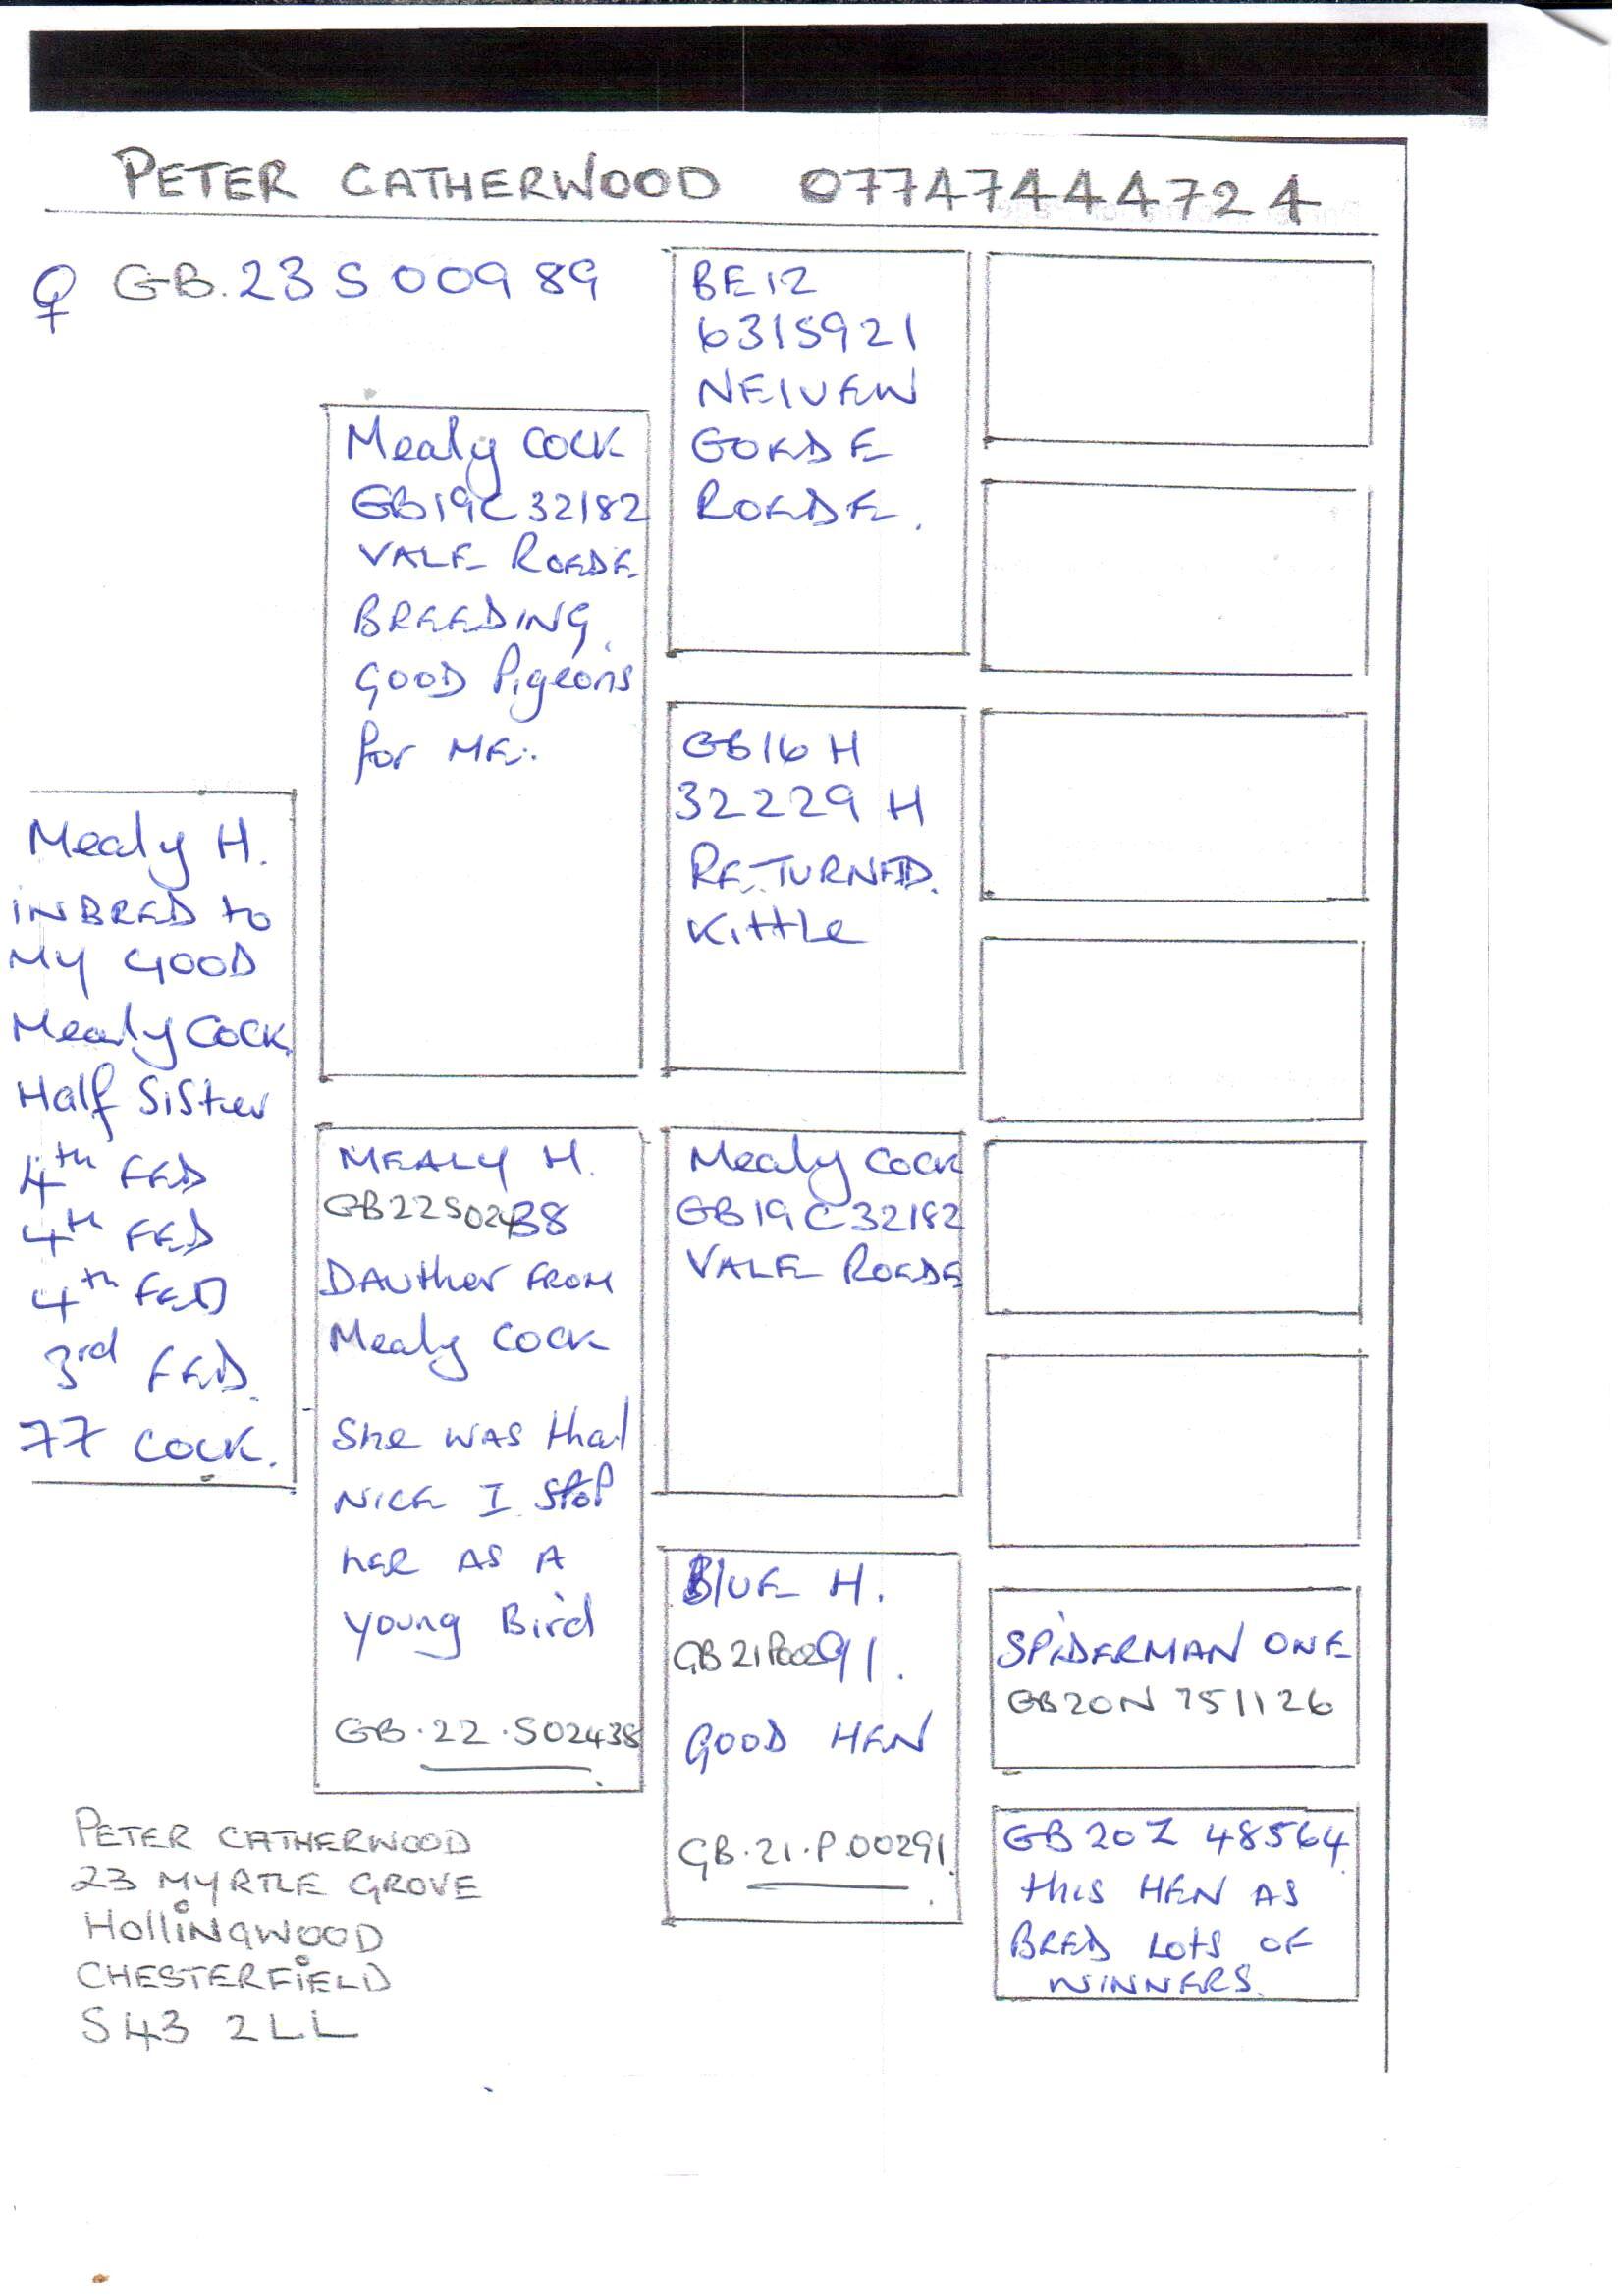 PETER CATHERWOOD 07747444724
♀ GB.23 S 00989
Mealy H.
INBRED to
MY GOOD
Mealy COCK
Half SISter
4th FED
4th FED
4th FED
3rd FED.
77 COCK.
Mealy COCK
GB19C32182
VALE ROEDE
BREEDING
GOOD Pigeons
for ME.
MEALY H.
GB22S02438
DAUther FROM
Mealy COCK
She WAS that
NICE I Stop
HER AS A
Young Bird
GB.22.S02438
BE12
6315921
NEIUEW
GOEDE
ROEDE.
GB16 H
32229 H
RETURNED.
Kittle
Mealy COCK
GB19C32182
VALE ROEDE
BlUE H.
GB21P00291.
GOOD HEN
GB.21.P.00291.
SPiDERMAN ONE
GB20N 751126
GB20Z 48564
thIS HEN AS
BRED Lots OF
WINNERS.
PETER CATHERWOOD
23 MYRTLE GROVE
HolliNGWOOD
CHESTERFiELD
S43 2LL